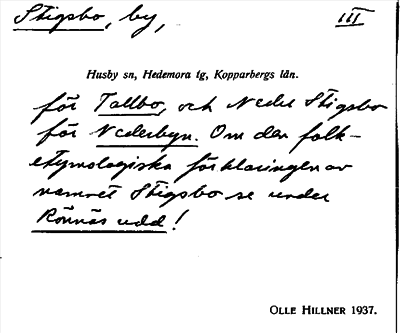 Stigsbo, by,
III
Husby sn, Hedemora tg, Kopparbergs län.
för Tallbo, och Nedre Stigsbo
för Nederbyn. Om den folk-
etymologiska förklaringen av
namnet Stigsbo se under
Rönnäs udd!
OLLE HILLNER 1937.